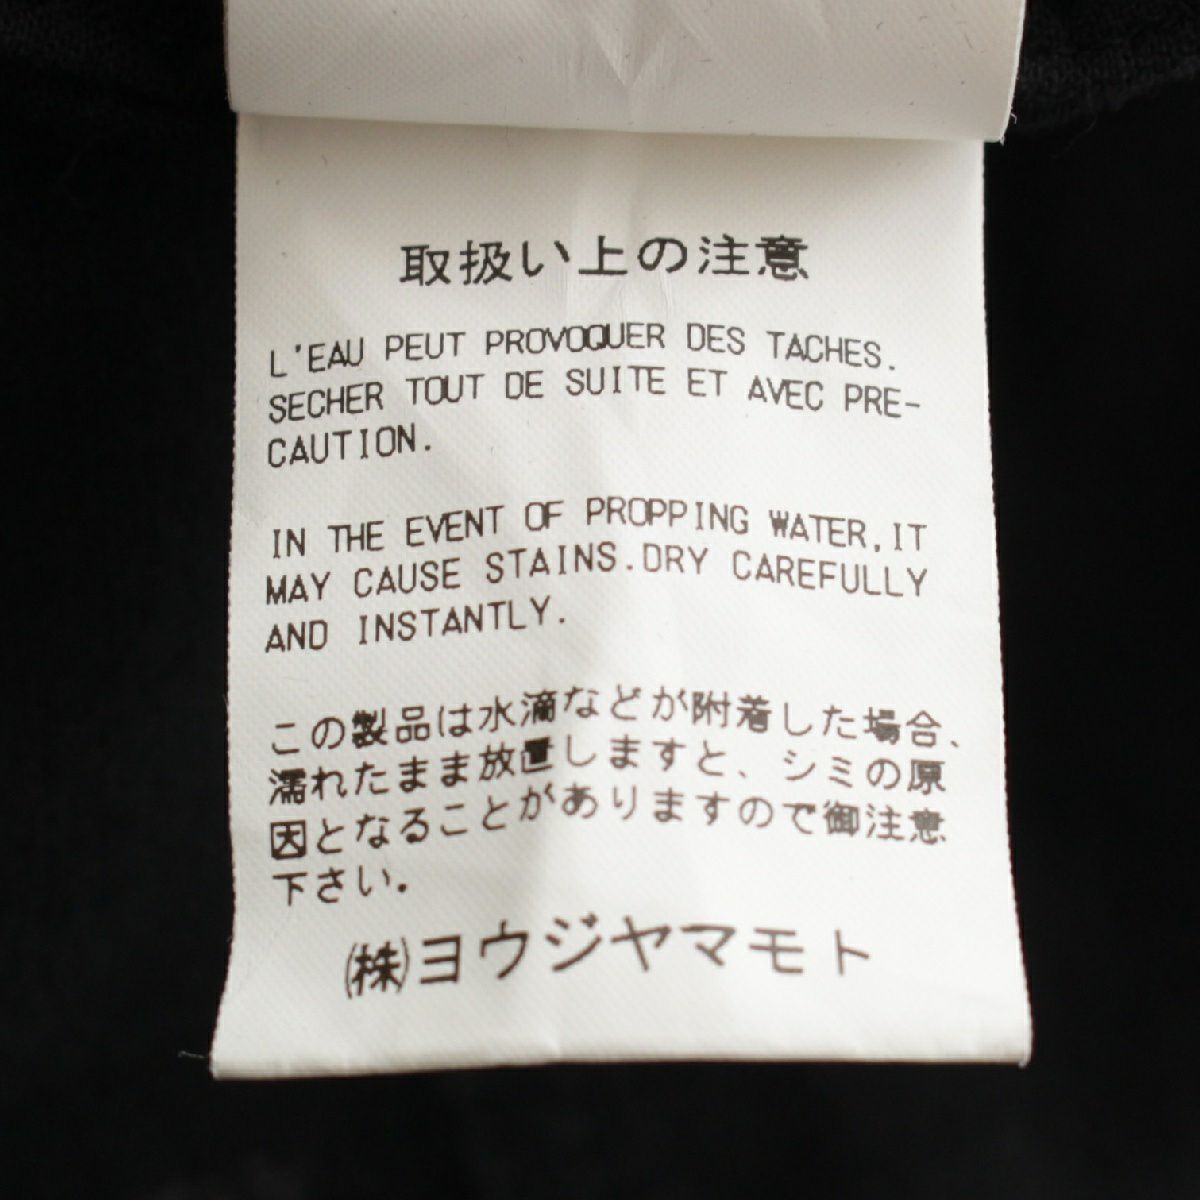 取扱い上の注意
L'EAU PEUT PROVOQUER DES TACHES.
SECHER TOUT DE SUITE ET AVEC PRE-
CAUTION.
IN THE EVENT OF PROPPING WATER,IT
MAY CAUSE STAINS.DRY CAREFULLY
AND INSTANTLY.
この製品は水滴などが附着した場合、
濡れたまま放置しますと、シミの原
因となることがありますので御注意
下さい。
(株)ヨウジヤマモト